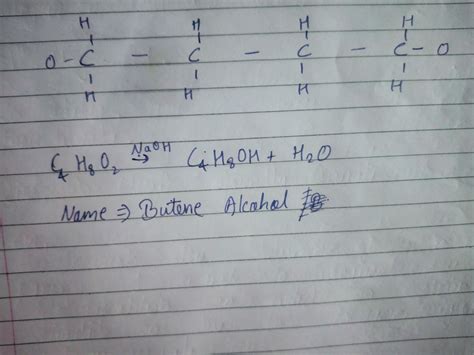 H H H H
O - C - C - C - C - O
H H H H
C4 H8 O2 NaOH → C4H8OH + H2O
Name ⇒ Butene Alcohal